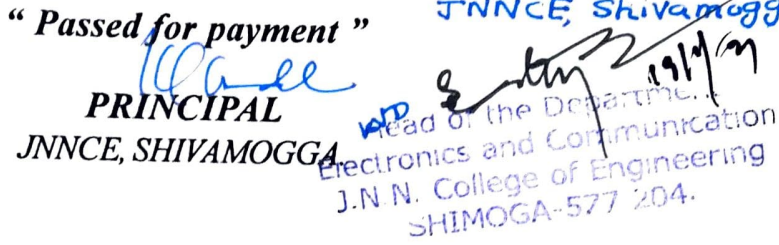 “ Passed for payment ”
PRINCIPAL
JNNCE, SHIVAMOGGA.
JNNCE, Shivamogg
Head of the Departme..
Electronics and Communication
J.N.N. College of Engineering
SHIMOGA-577 204.